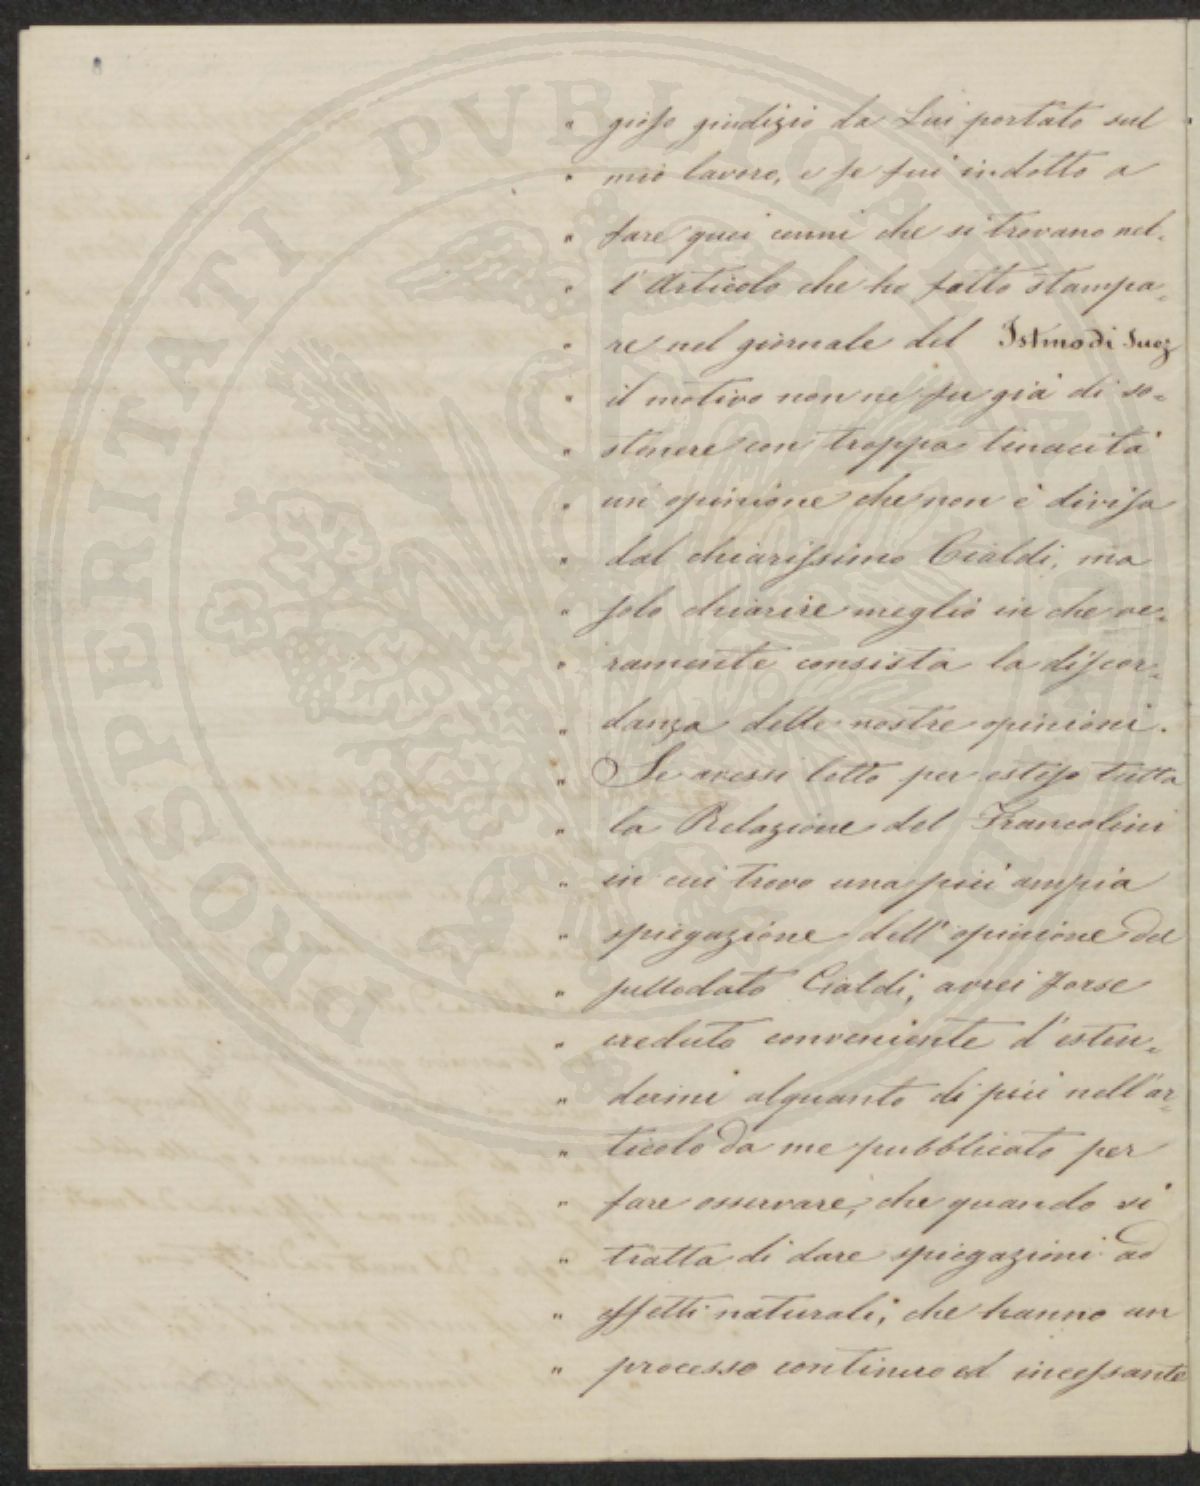 " gioso giudizio da Lui portato sul
" mio lavoro, e se fui indotto a
" fare quei cenni che si trovano nel-
" l'Articolo che ho fatto stampa=
" re nel giornale del Istmo di Suez
" il motivo non ne fu già di so=
" stenere con troppa tenacità
" un'opinione che non è divisa
" dal chiarissimo Cialdi, ma
" solo chiarire meglio in che ve=
" ramente consista la discor=
" danza delle nostre opinioni.
" Se avessi letto per esteso tutta
" la Relazione del Francolini
" in cui trovo una più ampia
" spiegazione dell'opinione del
" sullodato Cialdi, avrei forse
" creduto conveniente d'esten=
" dermi alquanto di più nell'ar=
" ticolo da me pubblicato per
" fare osservare, che quando si
" tratta di dare spiegazioni ad
" effetti naturali, che hanno un
" processo continuo ed incessante
PROSPERITATI PVBLICAE AVGENDAE